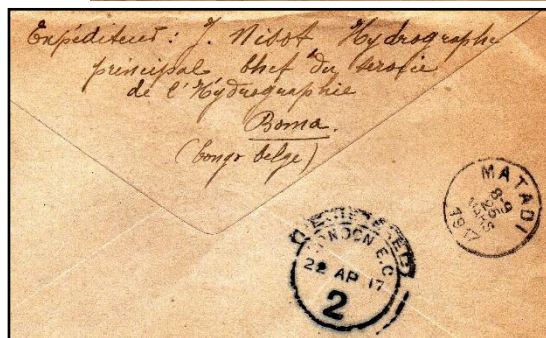 Expéditeur: J. Nisot Hydrographe
principal chef du service
de l'Hydrographie
Boma.
(Congo belge)
MATADI
8-9
25
MARS
1917
REGISTERED
LONDON E.C
22 AP 17
2